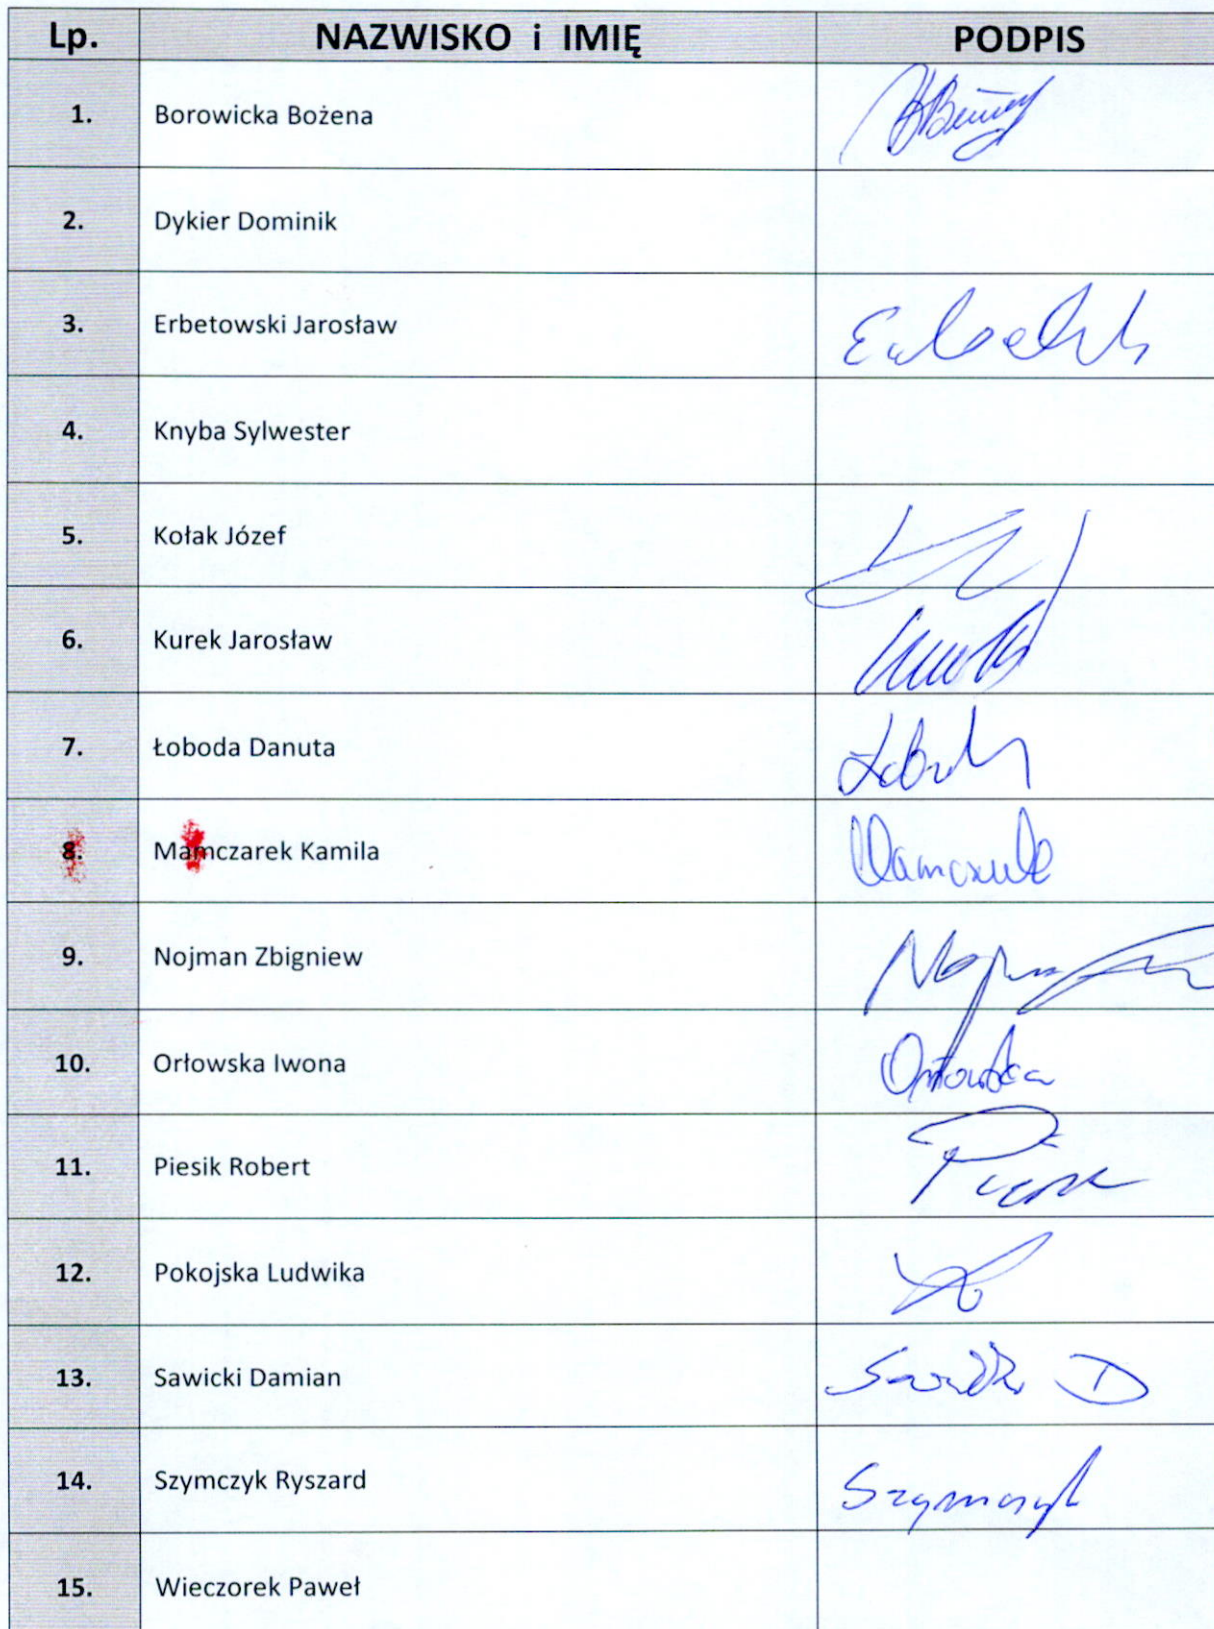 Lp. NAZWISKO i IMIĘ PODPIS
1. Borowicka Bożena
2. Dykier Dominik
3. Erbetowski Jarosław
4. Knyba Sylwester
5. Kołak Józef
6. Kurek Jarosław
7. Łoboda Danuta
8. Mamczarek Kamila
9. Nojman Zbigniew
10. Orłowska Iwona Orłowska
11. Piesik Robert
12. Pokojska Ludwika
13. Sawicki Damian
14. Szymczyk Ryszard Szymczyk
15. Wieczorek Paweł